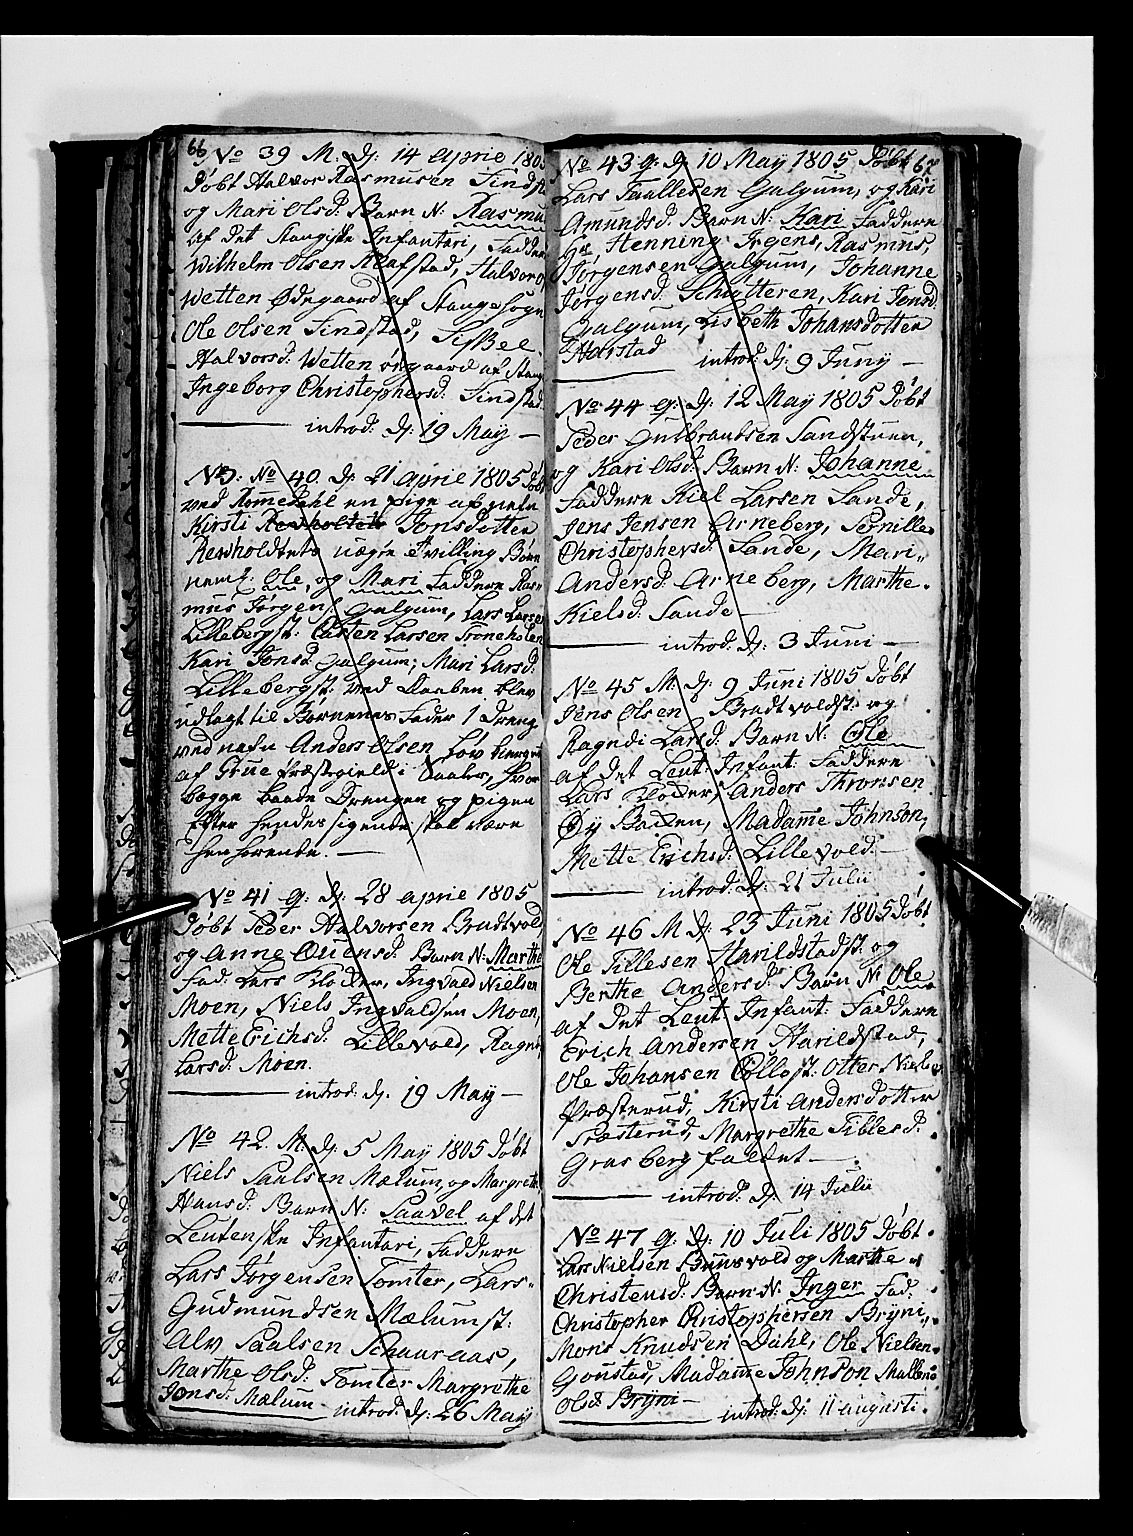 66
No 39 M. dj. 14 Aprie 180
Døbt Halvor Rasmusen Findst
og Mari Olsd: Barn N: Rasmu
af det Stangiske Infanteri, Fadder
Wilhelm Olsen Aafstad, Halvor
Wetten Ødegaard af Stange Sogn
Ole Olsen Findstad, Sisbel
Halvorsd: Wetten af Stang
Ingeborg Christophersd: Findstad
introd: dj. 19 May
No 40. dj 21 Aprie 1805 Døbt
ved Rommedahl en Pige af
Kirsti Jonsdotter
uægte Tvilling Børn
navnl: Ole, og Mari Faddere Ras-
mus Jørgens: Galgum, Lars Larsen
Lillebergst: Carsten Larsen
Kari Jonsd: Galgum, Mari Larsd:
Lillebergst: ved Daaben blev
udlagt til Børnenes Fader 1 Dreng
ved nafn Anders Olsen
af Grue Præstegield i Vaaler, hvor
begge baade Drengen og Pigen
efter hendes sigende skal være
henhørende.
No 41 q: dj. 28 Aprie 1805
Døbt Peder Halvorsen Bradtvold
og Anne Ouensd: Barn N: Marthe
Fad: Lars Kloxer, Ingvald Nielsen
Moen, Niels Ingvaldsen Moen,
Mette Erichsd: Lillevold, Ragn
Larsd: Moen.
introd: dj. 19 May
No 42. M. dj. 5 May 1805 Døbt
Niels Paulsen Mælum, og Margrethe
Hansd: Barn N: Paavel af det
Leutenske Infantari, Faddere
Lars Jørgensen Tomter, Lars
Gudmundsen Mælumst:
Alv Paalsen Schauraas,
Marthe Olsd: Tomter Margrethe
Jonsd: Mælum introd: dj: 26 May
67
No 43 q: dj. 10 May 1805 Døbt
Lars Taallesen Galgum, og Kari
Amundsd: Barn N: Kari Faddere
Hr Henning Irgens, Rasmus
Jørgensen Galgum, Johanne
Jørgensd: Schøtteren, Kari Jonsd:
Galgum, Lisbeth Johansdotter
Harstad introd: dj. 9 Junij
No 44 q: dj. 12 May 1805 Døbt
Peder Gulbrantsen Sandstuen,
og Kari Olsd: Barn N: Johanne
Faddere Kiel Larsen Sande,
Jens Jensen Arneberg, Pernille
Christophersd: Sande, Mari
Andersd: Arneberg, Marthe
Kielsd: Sande
introd: dj. 3 Juni
No 45 M. dj. 9 Juni 1805 Døbt
Jens Olsen Bradtvoldst: og
Ragndi Larsd: Barn N: Ole
af det Leut: Infant: Faddere
Lars Kloxer, Anders Thronsen
Øy Backen, Madame Johnson,
Mette Erichsd: Lillevold.
introd: dj: 21 Julii
No 46 M dj. 23 Juni 1805 Døbt
Ole Tillesen Harildstadst: og
Berthe Andersd: Barn N: Ole
af det Leut: Infant: Faddere
Erich Andersen Harildstad,
Ole Johansen Otter Niels
Præsterud, Kirsti Andersdotter
Præsterud, Margrethe Tillesd:
Grasbergfaldet
introd: dj. 14 Julii
No 47 q: dj. 10 Juli 1805 Døbt
Lars Nielsen Bunsvold og Marthe
Christensd: Barn N: Inger Fad:
Christopher Christophersen Bryni,
Mons Knudsen Dahl, Ole Nielsen
Gonstad, Madame Johnson Mallene
Olsd: Bryni
introd: dj. 11 Augusti